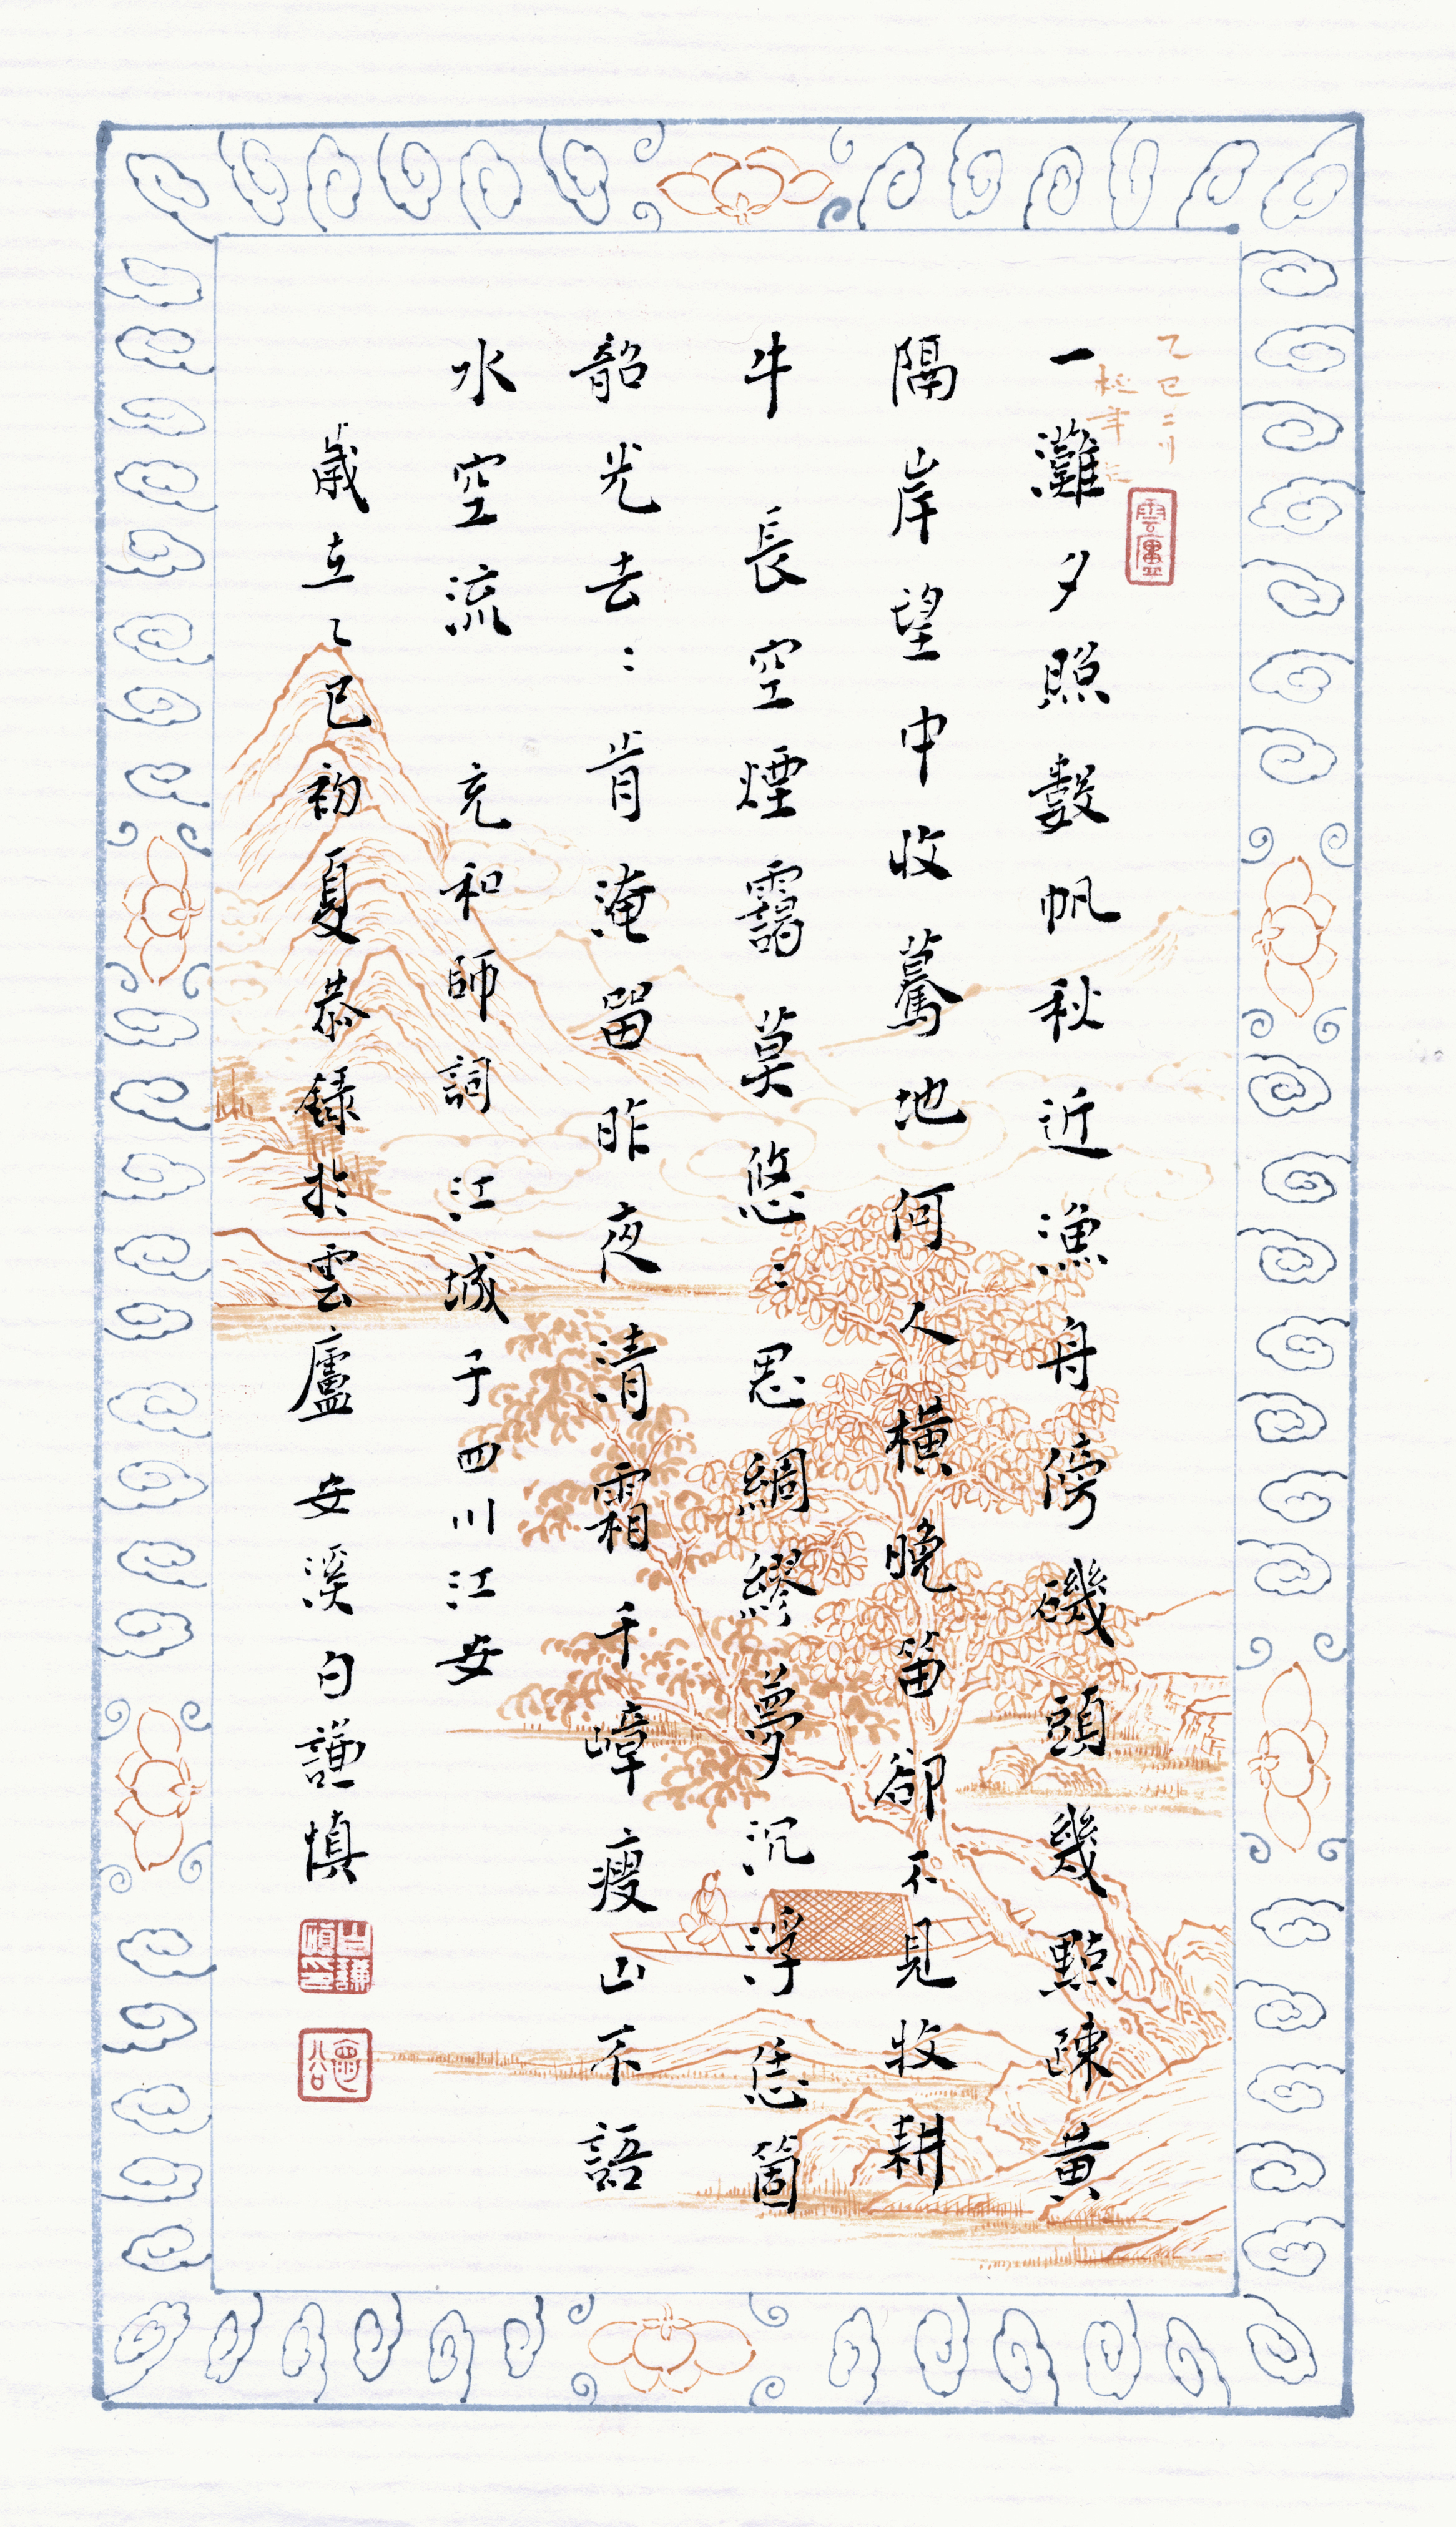 一灘夕照數帆秋近漁舟傍磯頭幾點疎黃
隔岸望中收驀地何人橫晚笛卻不見牧耕
牛 長空煙靄莫悠〻思綢繆夢沉浮恁箇
韶光去〻肯淹留昨夜清霜千嶂瘦山不語
水空流 充和師詞 江城子四川江安
歲立乙巳初夏恭錄於雲廬 安溪白謙慎
乙巳二月
雲廬
白謙慎印